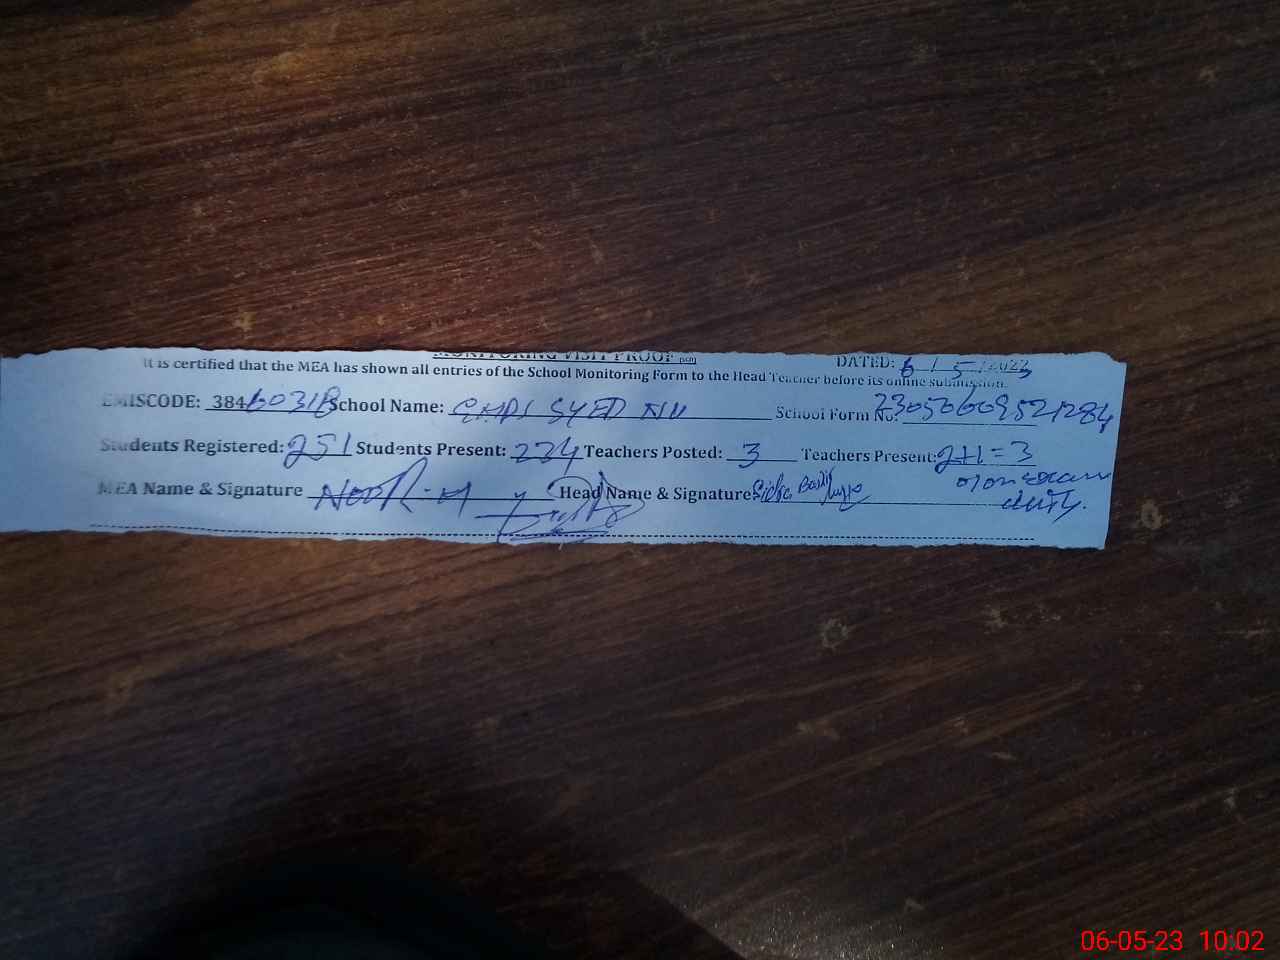 MONITORING VISIT PROOF
DATED: 6/5/2023
It is certified that the MEA has shown all entries of the School Monitoring Form to the Head Teacher before its online submission.
EMISCODE: 38460318 School Name: GMPS SYED School Form No: 23050609521284
Students Registered: 251 Students Present: 234 Teachers Posted: 3 Teachers Present: 2+1=3
MEA Name & Signature NOOR Head Name & Signature Sidra
01 on exam
duty.
06-05-23 10:02